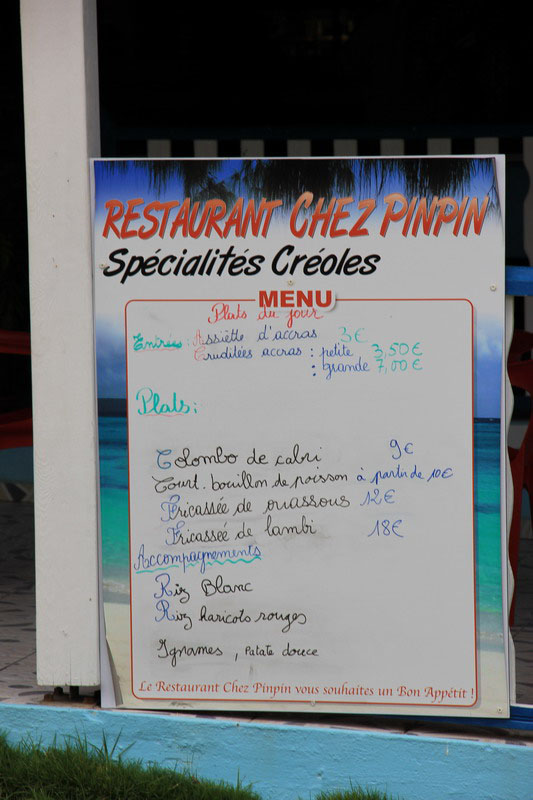 RESTAURANT CHEZ PINPIN
Spécialités Créoles
MENU
Plats du jour
Entrées : Assiètte d'accras 3€
Cruditées accras : petite 3,50€
: grande 7,00€
Plats :
Colombo de cabri 9€
Court.bouillon de poisson à partir de 10€
Fricassée de ouassous 12€
Fricassée de lambi 18€
Accompagnements
Riz Blanc
Riz haricots rouges
Ignames, Patate douce
Le Restaurant Chez Pinpin vous souhaites un Bon Appétit !